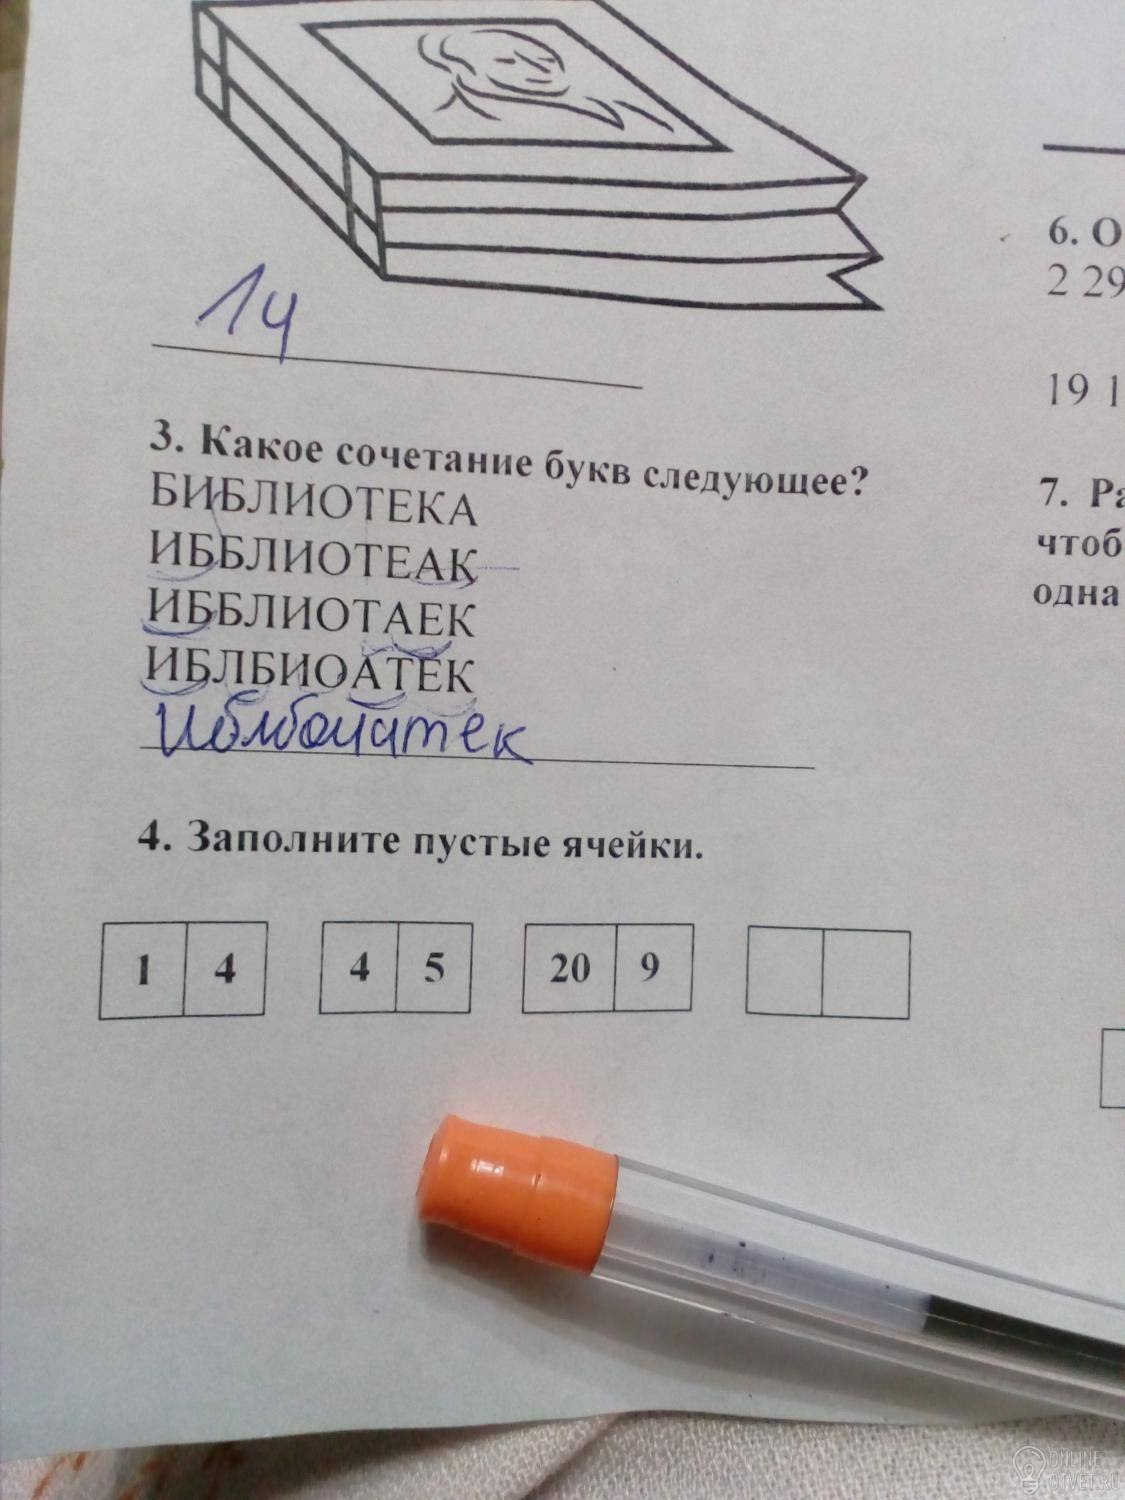 14
3. Какое сочетание букв следующее?
БИБЛИОТЕКА
ИББЛИОТЕАК
ИББЛИОТАЕК
ИБЛБИОАТЕК
4. Заполните пустые ячейки.
1 4 4 5 20 9
6. О
2 29
19 1
7. Ра
чтоб
одна
ONLINE
OTVET.RU